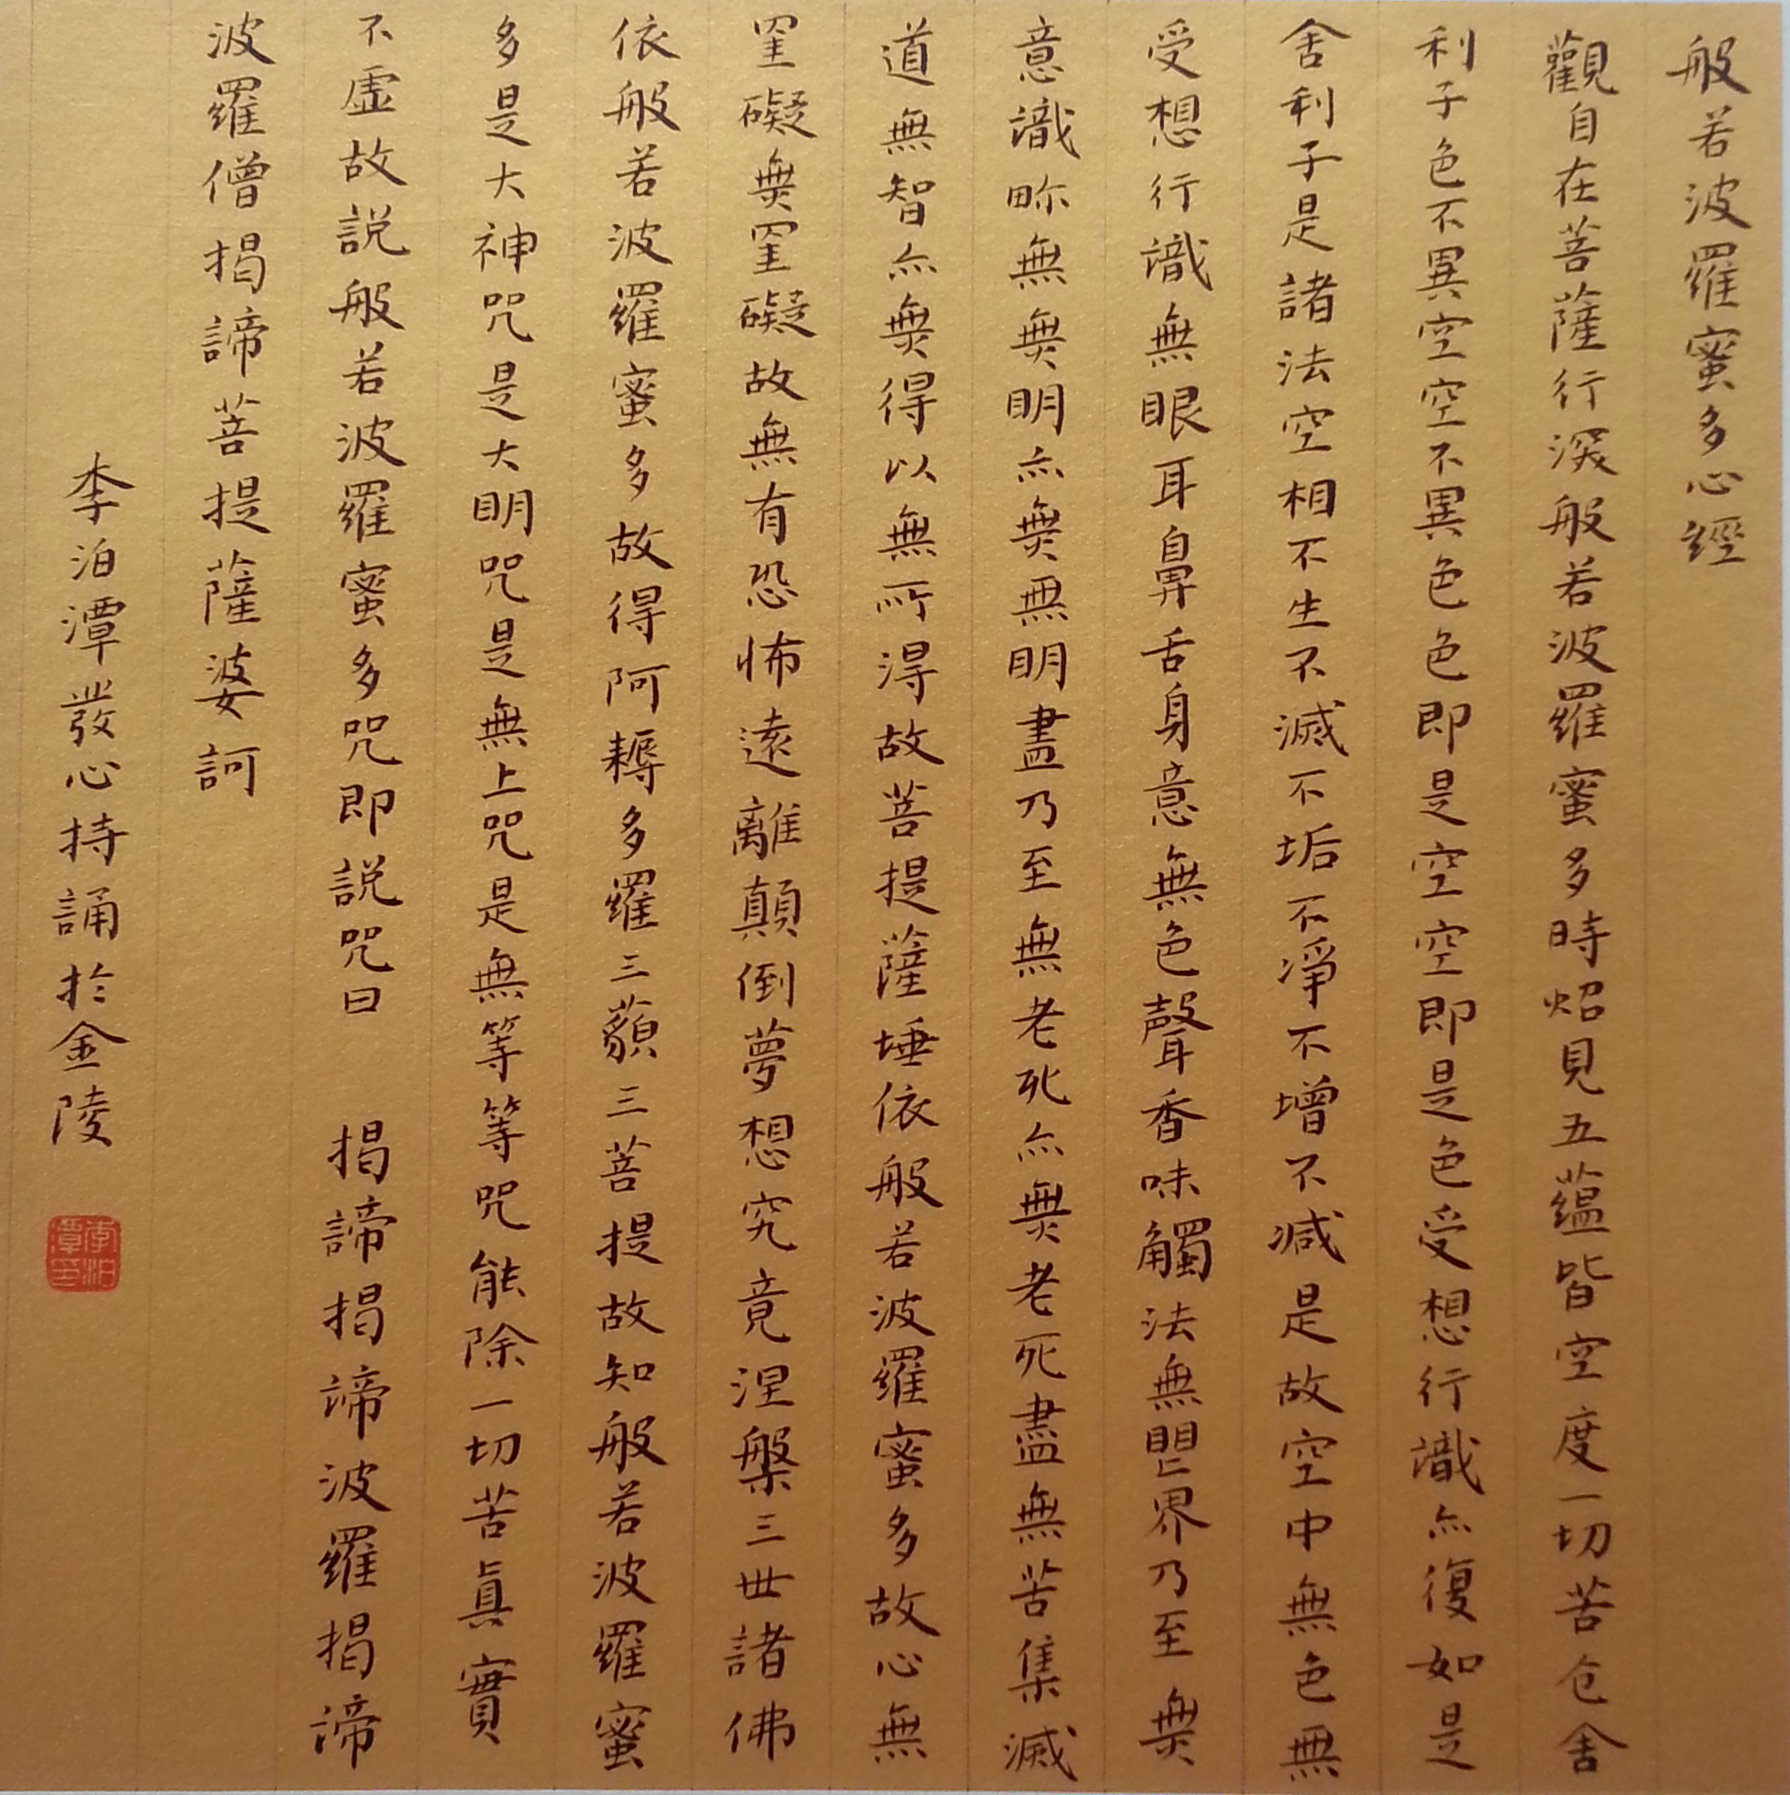 般若波羅蜜多心經
觀自在菩薩行深般若波羅蜜多時炤見五蘊皆空度一切苦仓舍
利子色不異空空不異色色即是空空即是色受想行識亦復如是
舍利子是諸法空相不生不滅不垢不淨不增不減是故空中無色無
受想行識無眼耳鼻舌身意無色聲香味觸法無眀界乃至無
意識畍無無明亦無無明盡乃至無老死亦無老死盡無苦集滅
道無智亦無得以無所得故菩提薩埵依般若波羅蜜多故心無
罣礙無罣礙故無有恐怖遠離顛倒夢想究竟涅槃三世諸佛
依般若波羅蜜多故得阿耨多羅三藐三菩提故知般若波羅蜜
多是大神咒是大明咒是無上咒是無等等咒能除一切苦真實
不虛故說般若波羅蜜多咒即說咒曰 揭諦揭諦波羅揭諦
波羅僧揭諦菩提薩婆訶
李泊潭發心持誦於金陵
李泊潭印